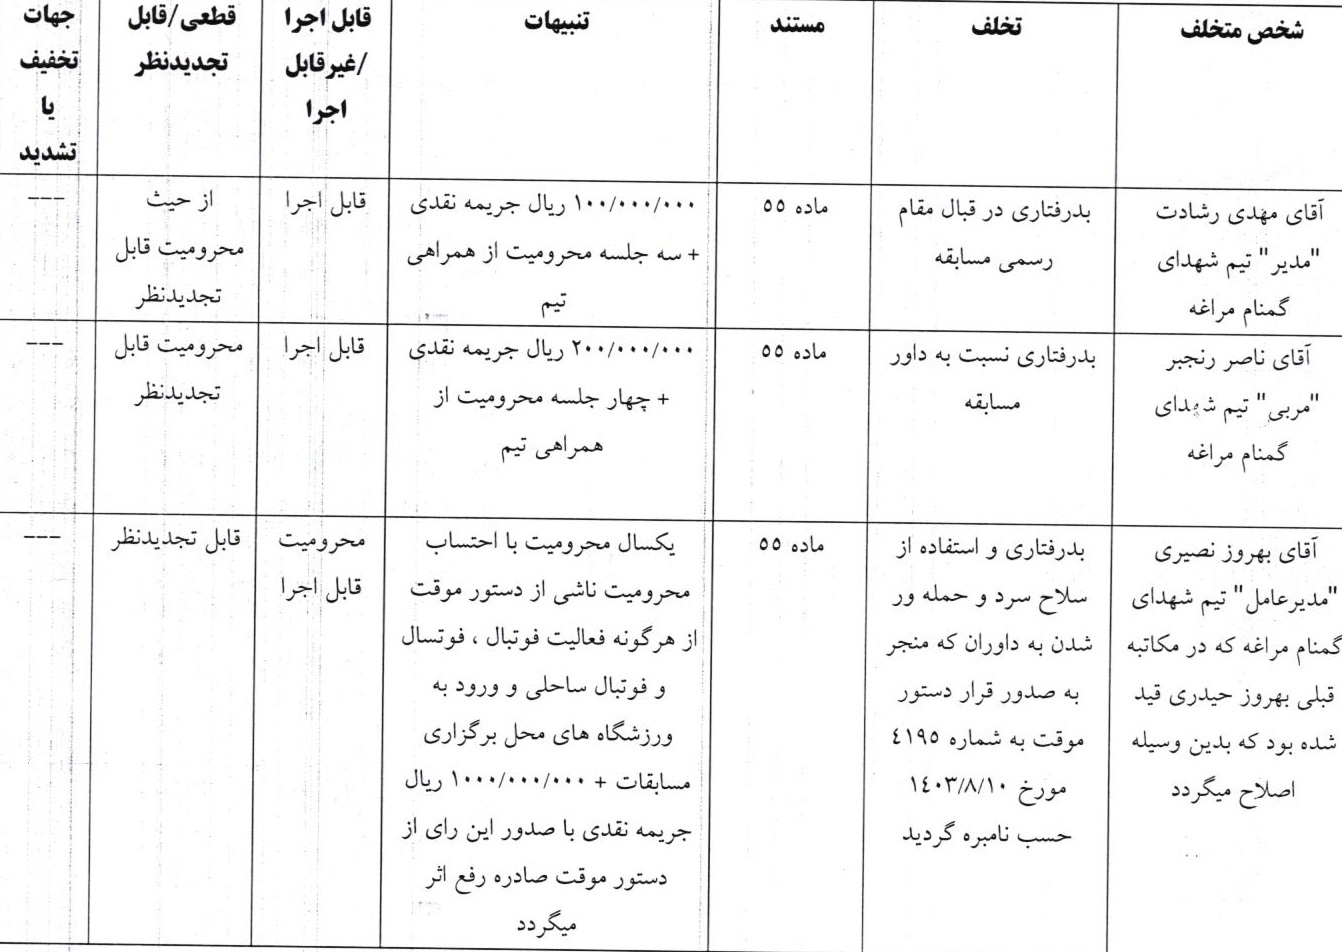 شخص متخلف
تخلف
مستند
تنبیهات
قابل اجرا
/غیرقابل
اجرا
قطعی/قابل
تجدیدنظر
جهات
تخفیف
یا
تشدید
آقای مهدی رشادت
"مدیر" تیم شهدای
گمنام مراغه
بدرفتاری در قبال مقام
رسمی مسابقه
ماده ٥٥
١٠٠/٠٠٠/٠٠٠ ریال جریمه نقدی
+ سه جلسه محرومیت از همراهی
تیم
قابل اجرا
از حیث
محرومیت قابل
تجدیدنظر
---
آقای ناصر رنجبر
"مربی" تیم شهدای
گمنام مراغه
بدرفتاری نسبت به داور
مسابقه
ماده ٥٥
٢٠٠/٠٠٠/٠٠٠ ریال جریمه نقدی
+ چهار جلسه محرومیت از
همراهی تیم
قابل اجرا
محرومیت قابل
تجدیدنظر
---
آقای بهروز نصیری
"مدیرعامل" تیم شهدای
گمنام مراغه که در مکاتبه
قبلی بهروز حیدری قید
شده بود که بدین وسیله
اصلاح میگردد
بدرفتاری و استفاده از
سلاح سرد و حمله ور
شدن به داوران که منجر
به صدور قرار دستور
موقت به شماره ٤١٩٥
مورخ ١٤٠٣/٨/١٠
حسب نامبره گردید
ماده ٥٥
یکسال محرومیت با احتساب
محرومیت ناشی از دستور موقت
از هرگونه فعالیت فوتبال ، فوتسال
و فوتبال ساحلی و ورود به
ورزشگاه های محل برگزاری
مسابقات + ١٠٠٠/٠٠٠/٠٠٠ ریال
جریمه نقدی با صدور این رای از
دستور موقت صادره رفع اثر
میگردد
محرومیت
قابل اجرا
قابل تجدیدنظر
---